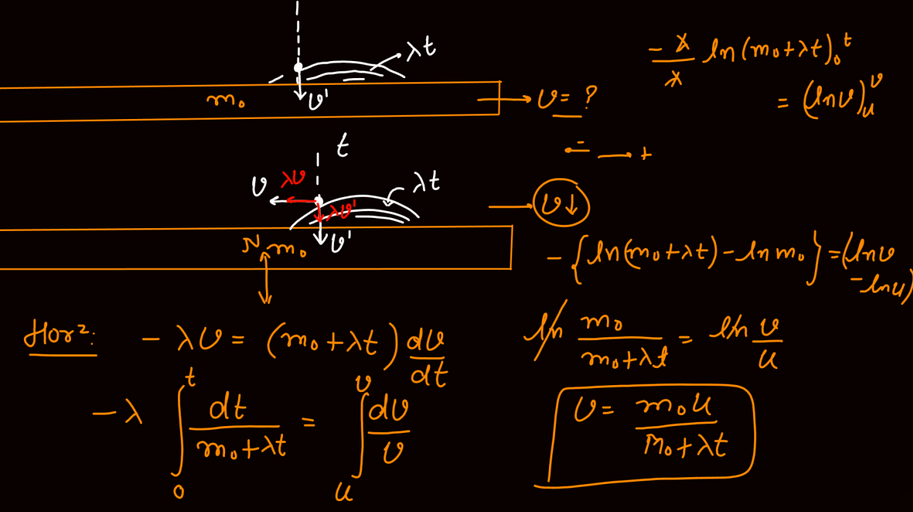 λt
m₀
v'
v = ?
t
v
λv
λv'
λt
v'
N
m₀
v↓
Horz: - λv = (m₀+λt) dv/dt
- λ ∫₀ᵗ dt/(m₀+λt) = ∫ᵤᵛ dv/v
- λ/λ ln(m₀+λt)₀ᵗ
= (lnv)ᵤᵛ
- +
- {ln(m₀+λt) - ln m₀} = (lnv - lnu)
ln m₀/(m₀+λt) = ln v/u
v = m₀u/(m₀+λt)